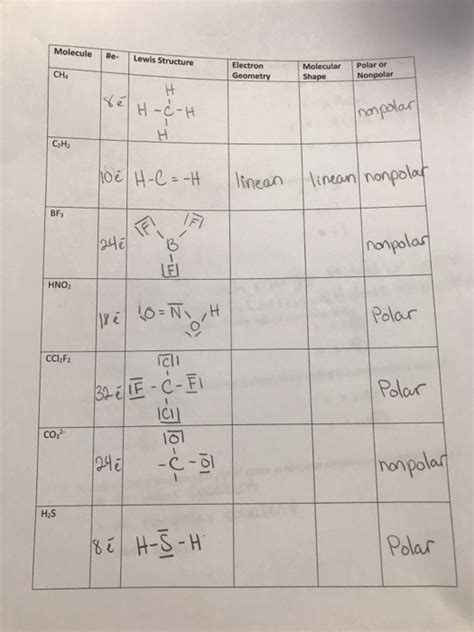 Molecule #e- Lewis Structure Electron Geometry Molecular Shape Polar or Nonpolar
CH₄ 8ē H
H - C - H
H
nonpolar
C₂H₂ 10ē H-C = -H linean linean nonpolar
BF₃ 24ē F F
B
F
nonpolar
HNO₂ 18ē O = N H
O
Polar
CCl₂F₂ 32ē Cl
F - C - F
Cl
Polar
CO₃²⁻ 24ē O
- C - O
nonpolar
H₂S 8ē H-S-H Polar